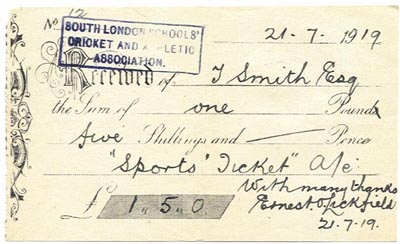 No. 12 21-7-1919
SOUTH LONDON SCHOOLS'
CRICKET AND ATHLETIC
ASSOCIATION.
Received of J Smith Esq
the Sum of one Pound
five Shillings and — Pence
"Sports' Ticket" A/c
With many thanks
£ 1, 5, 0. Ernest
21-7-19.